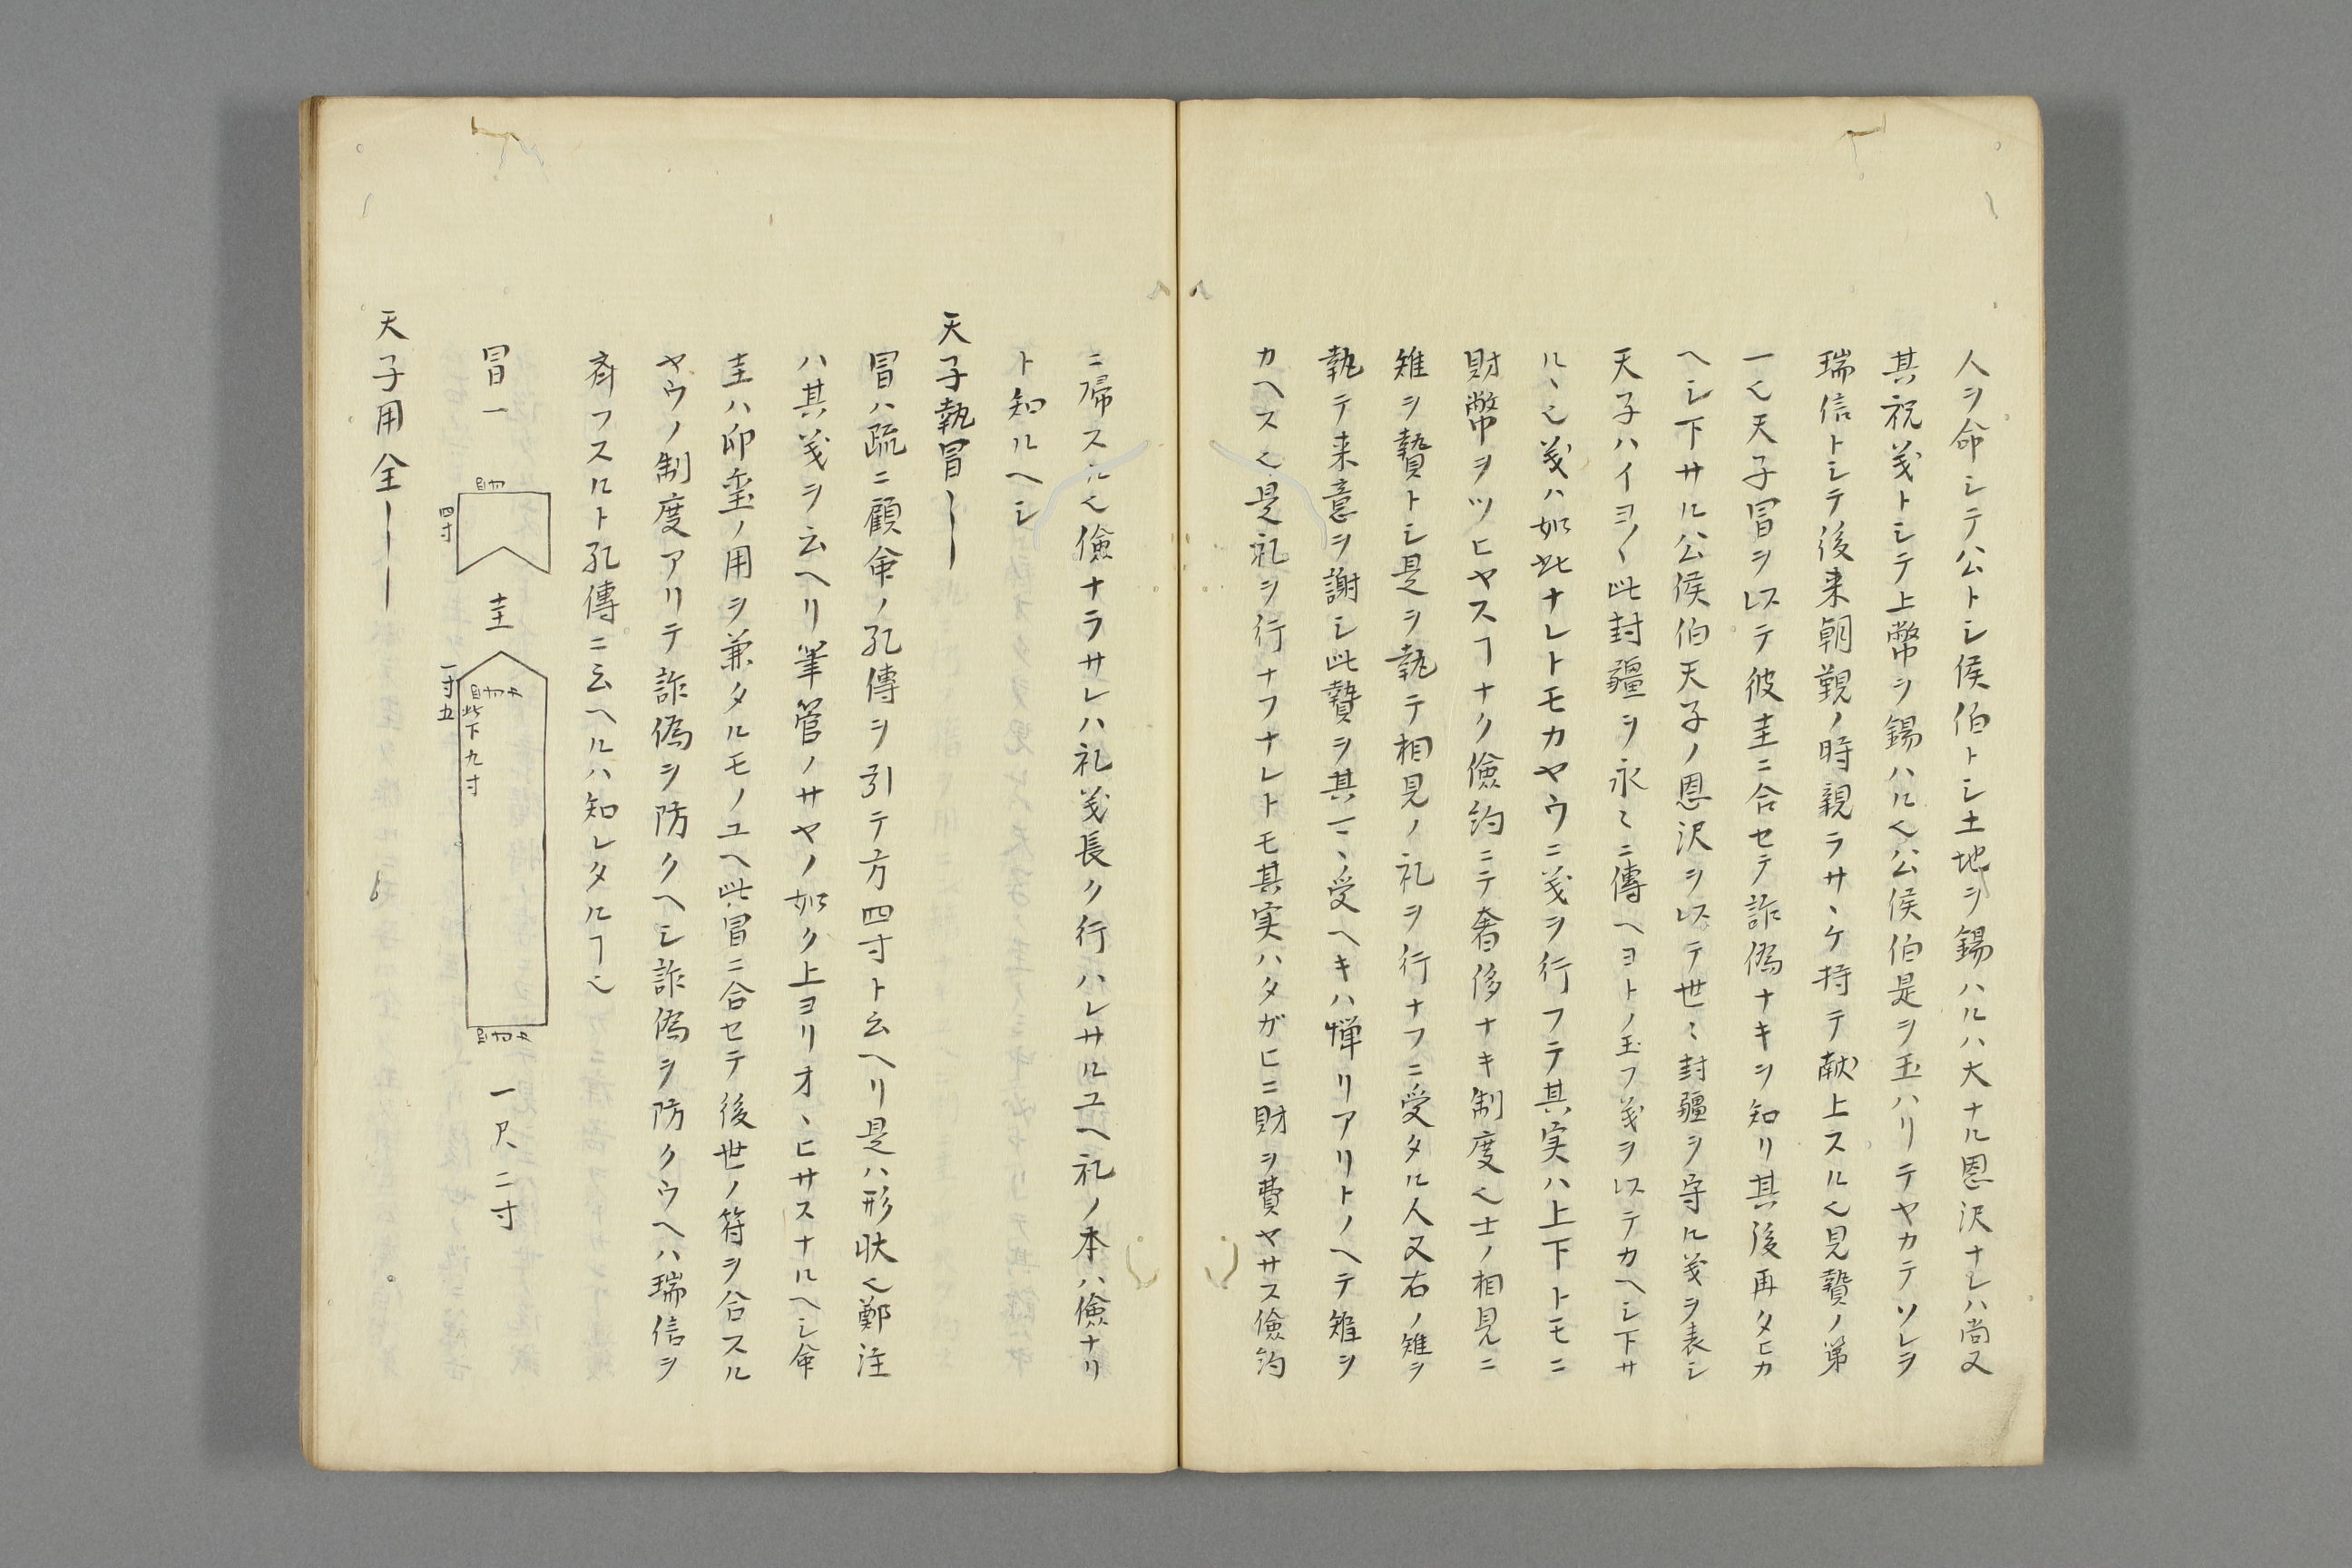 人ヲ命シテ公トシ侯伯トシ土地ヲ錫ハルハ大ナル恩沢ナレハ尚又
其祝義トシテ上幣ヲ錫ハル也公侯伯是ヲ玉ハリテヤカテソレヲ
瑞信トシテ後来朝覲ノ時親ラサヽケ持テ献上スル也見贄ノ第
一也天子冒ヲ以テ彼圭ニ合セテ詐偽ナキヲ知リ其後再タヒカ
ヘシ下サル公侯伯天子ノ恩沢ヲ以テ世〻封疆ヲ守ル義ヲ表シ
天子ハイヨ〳〵此封疆ヲ永〻ニ傳ヘヨトノ玉フ義ヲ以テカヘシ下サ
ルヽ也義ハ如此ナレトモカヤウニ義ヲ行フテ其実ハ上下トモニ
財幣ヲツヒヤスヿナク儉約ニテ奢侈ナキ制度也士ノ相見ニ
雉ヲ贄トシ是ヲ執テ相見ノ礼ヲ行ナフニ受タル人又右ノ雉ヲ
執テ来意ヲ謝シ此贄ヲ其マヽ受ヘキハ憚リアリトノヘテ雉ヲ
カヘス也是礼ヲ行ナフナレトモ其実ハタガヒニ財ヲ費ヤサス儉約
ニ帰スル也儉ナラサレハ礼義長ク行ハレサルユヘ礼ノ本ハ儉ナリ
ト知ルヘシ
天子執冒——
冒ハ疏ニ顧命ノ孔傳ヲ引テ方四寸ト云ヘリ是ハ形状也鄭注
ハ其義ヲ云ヘリ筆管ノサヤノ如ク上ヨリオヽヒサスナルヘシ命
圭ハ印璽ノ用ヲ兼タルモノユヘ此冒ニ合セテ後世ノ符ヲ合スル
ヤウノ制度アリテ詐偽ヲ防クヘシ詐偽ヲ防クウヘハ瑞信ヲ
斉フスルト孔傳ニ云ヘルハ知レタルヿ也
冒一
四寸
圭
一寸五
此下九寸
一尺二寸
天子用全———